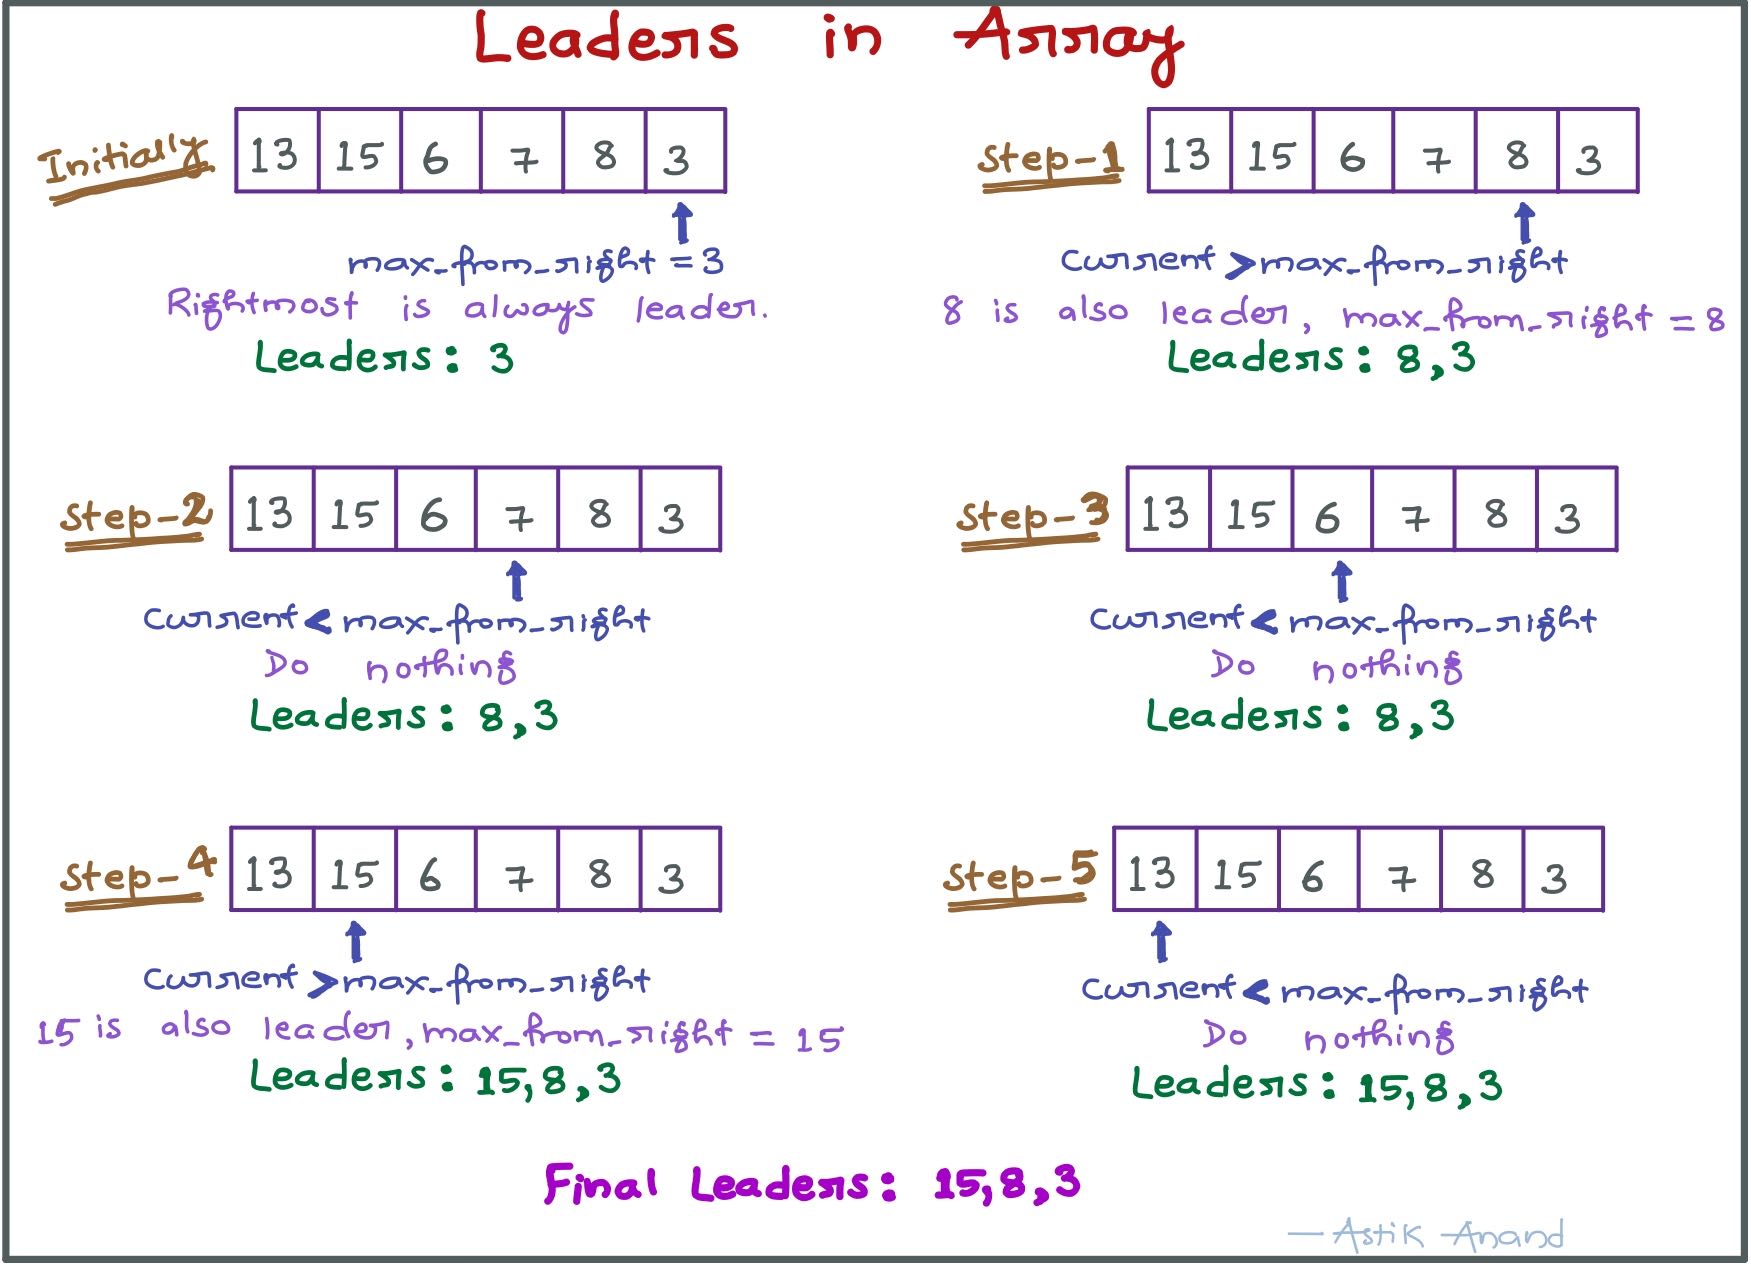 Leaders in Array
Initially 13 15 6 7 8 3
max_from_right = 3
Rightmost is always leader.
Leaders: 3
Step-1 13 15 6 7 8 3
Current > max_from_right
8 is also leader, max_from_right = 8
Leaders: 8,3
Step-2 13 15 6 7 8 3
Current < max_from_right
Do nothing
Leaders: 8,3
Step-3 13 15 6 7 8 3
Current < max_from_right
Do nothing
Leaders: 8,3
Step-4 13 15 6 7 8 3
Current > max_from_right
15 is also leader, max_from_right = 15
Leaders: 15,8,3
Step-5 13 15 6 7 8 3
Current < max_from_right
Do nothing
Leaders: 15,8,3
Final Leaders: 15,8,3
— Astik Anand